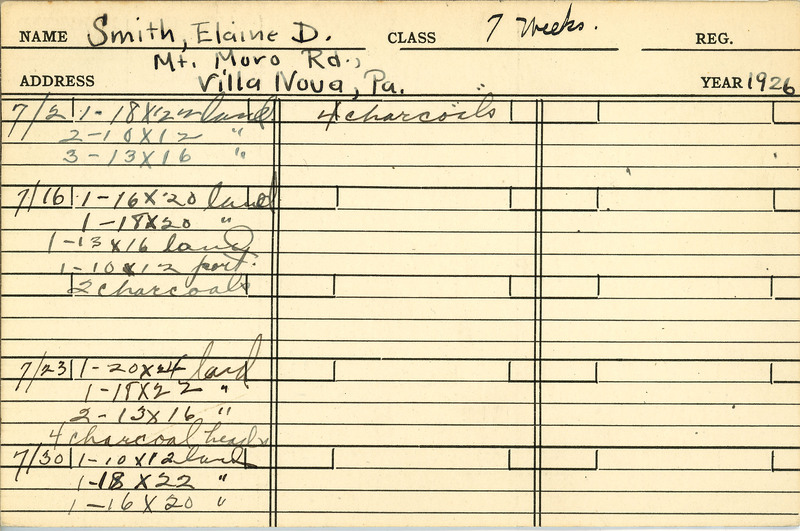 NAME Smith, Elaine D. CLASS 7 Weeks. REG.
Mt. Moro Rd.,
ADDRESS Villa Nova, Pa. YEAR 1926
7/2 1-18X22 land 4 charcoals
2-10X12 "
3-13X16 "
7/16 1-16X20 land
1-18X20 "
1-13X16 land
1-10X12 port.
2 charcoals
7/23 1-20X24 land
1-18X22 "
2-13X16 "
4 charcoal heads
7/30 1-10X12 land
1-18X22 "
1-16X20 "